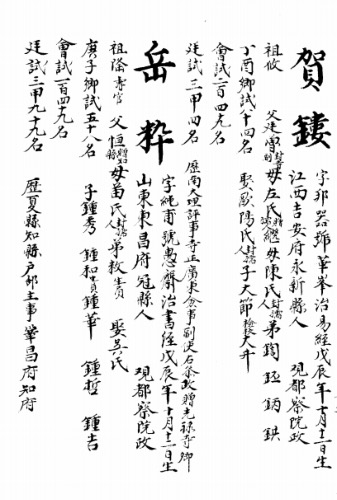 賀鏤
字邦器號華峯治易經戊辰年十月十二日生
江西吉安府永新縣人 現都察院政
祖攸 父廷 母左氏 繼母陳氏 弟 鈳 鉦 鋉
丁酉鄉試八十四名 娶歐陽氏封孺人 子大節 大升
會試二百四九名
廷試三甲四名 歷南大理評事寺正廣東僉事副使右參政贈光祿寺卿
岳粹
字純甫號愚齋治書經戊辰年十月十二日生
山東東昌府冠縣人 現都察院政
祖隆壽官 父恒 母苗氏 弟教生員 娶吳氏
庚子鄉試五十八名 子鍾秀 鍾和生員 鍾華 鍾哲 鍾吉
會試一百四九名
廷試三甲九十九名 歷夏縣知縣戶部主事鞏昌府知府